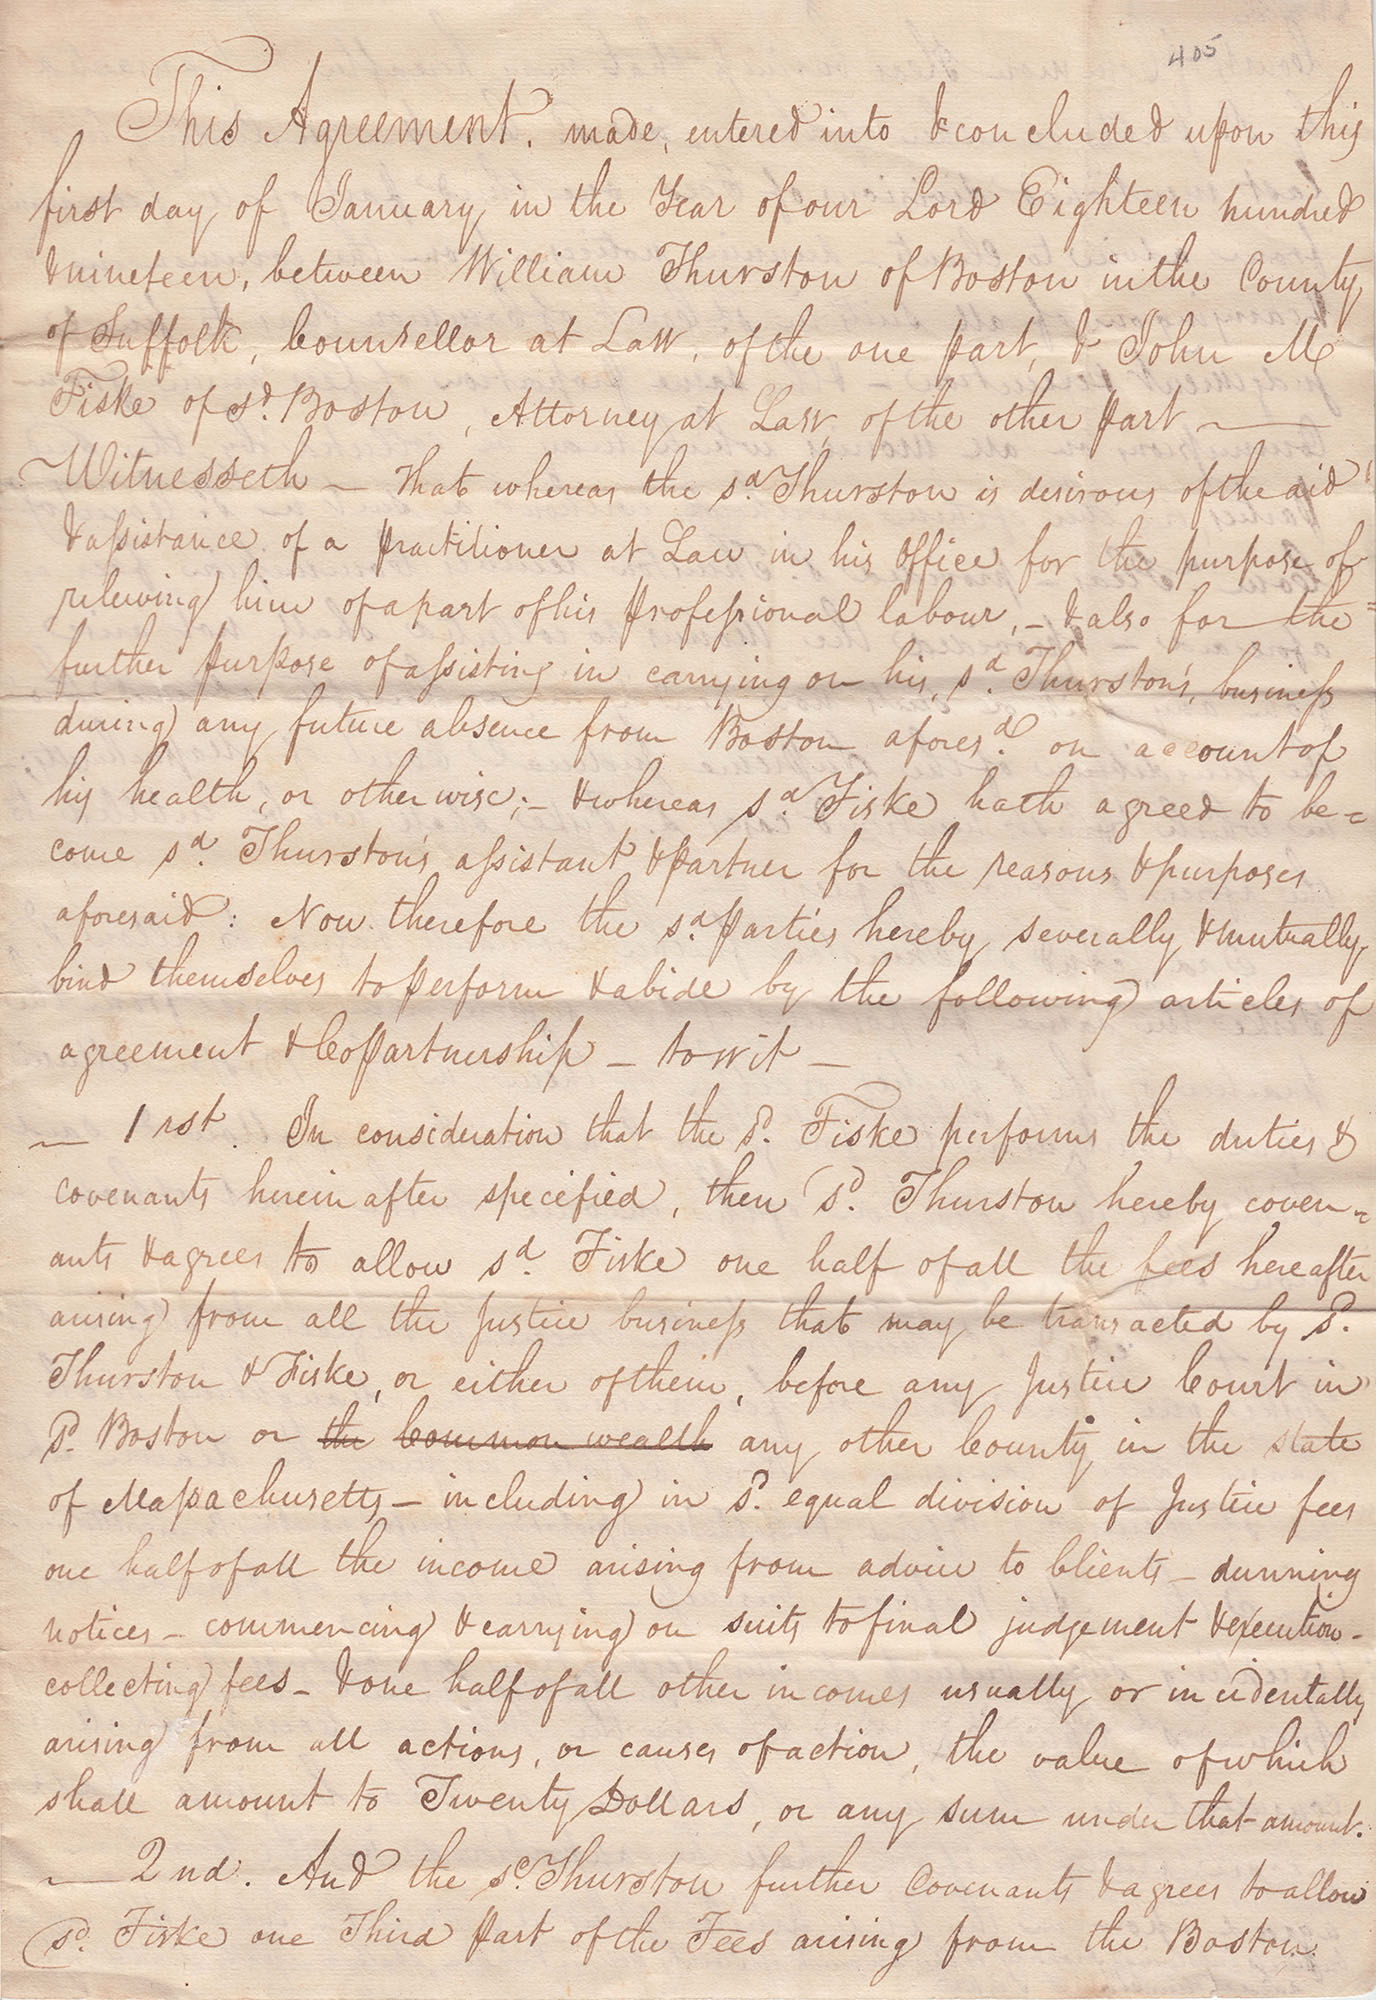 405
This Agreement, made, entered into & concluded upon this
first day of January in the Year of our Lord Eighteen hundred
& nineteen, between William Thurston of Boston in the County
of Suffolk, Counsellor at Law, of the one part, & John M
Fiske of sd. Boston, Attorney at Law, of the other part —
Witnesseth — That whereas the sd. Thurston is desirous of the aid
& assistance of a practitioner at Law in his office for the purpose of
releiving him of a part of his professional labour, — & also for the
further purpose of assisting in carrying on his, sd. Thurston's, business
during any future absence from Boston aforesd. on account of
his health, or otherwise; — & whereas sd. Fiske hath agreed to be=
come sd. Thurston's assistant & partner for the reasons & purposes
aforesaid: Now therefore the sd. parties hereby severally & mutually
bind themselves to perform & abide by the following articles of
agreement & CoPartnership — to wit —
— 1rst. In consideration that the sd. Fiske performs the duties &
covenants herein after specified, then sd. Thurston hereby coven=
ants & agrees to allow sd. Fiske one half of all the fees hereafter
arising from all the Justice business that may be transacted by sd.
Thurston & Fiske, or either of them, before any Justice Court in
sd. Boston or the Common wealth any other County in the state
of Massachusetts — including in sd. equal division of Justice fees
one half of all the income arising from advice to Clients — dunning
notices — commencing & carrying on suits to final judgement & execution —
collecting fees — & one half of all other incomes usually or incidentally
arising from all actions, or causes of action, the value of which
shall amount to Twenty Dollars, or any sum under that amount.
— 2nd. And the sd. Thurston further Covenants & agrees to allow
sd. Fiske one Third part of the Fees arising from the Boston